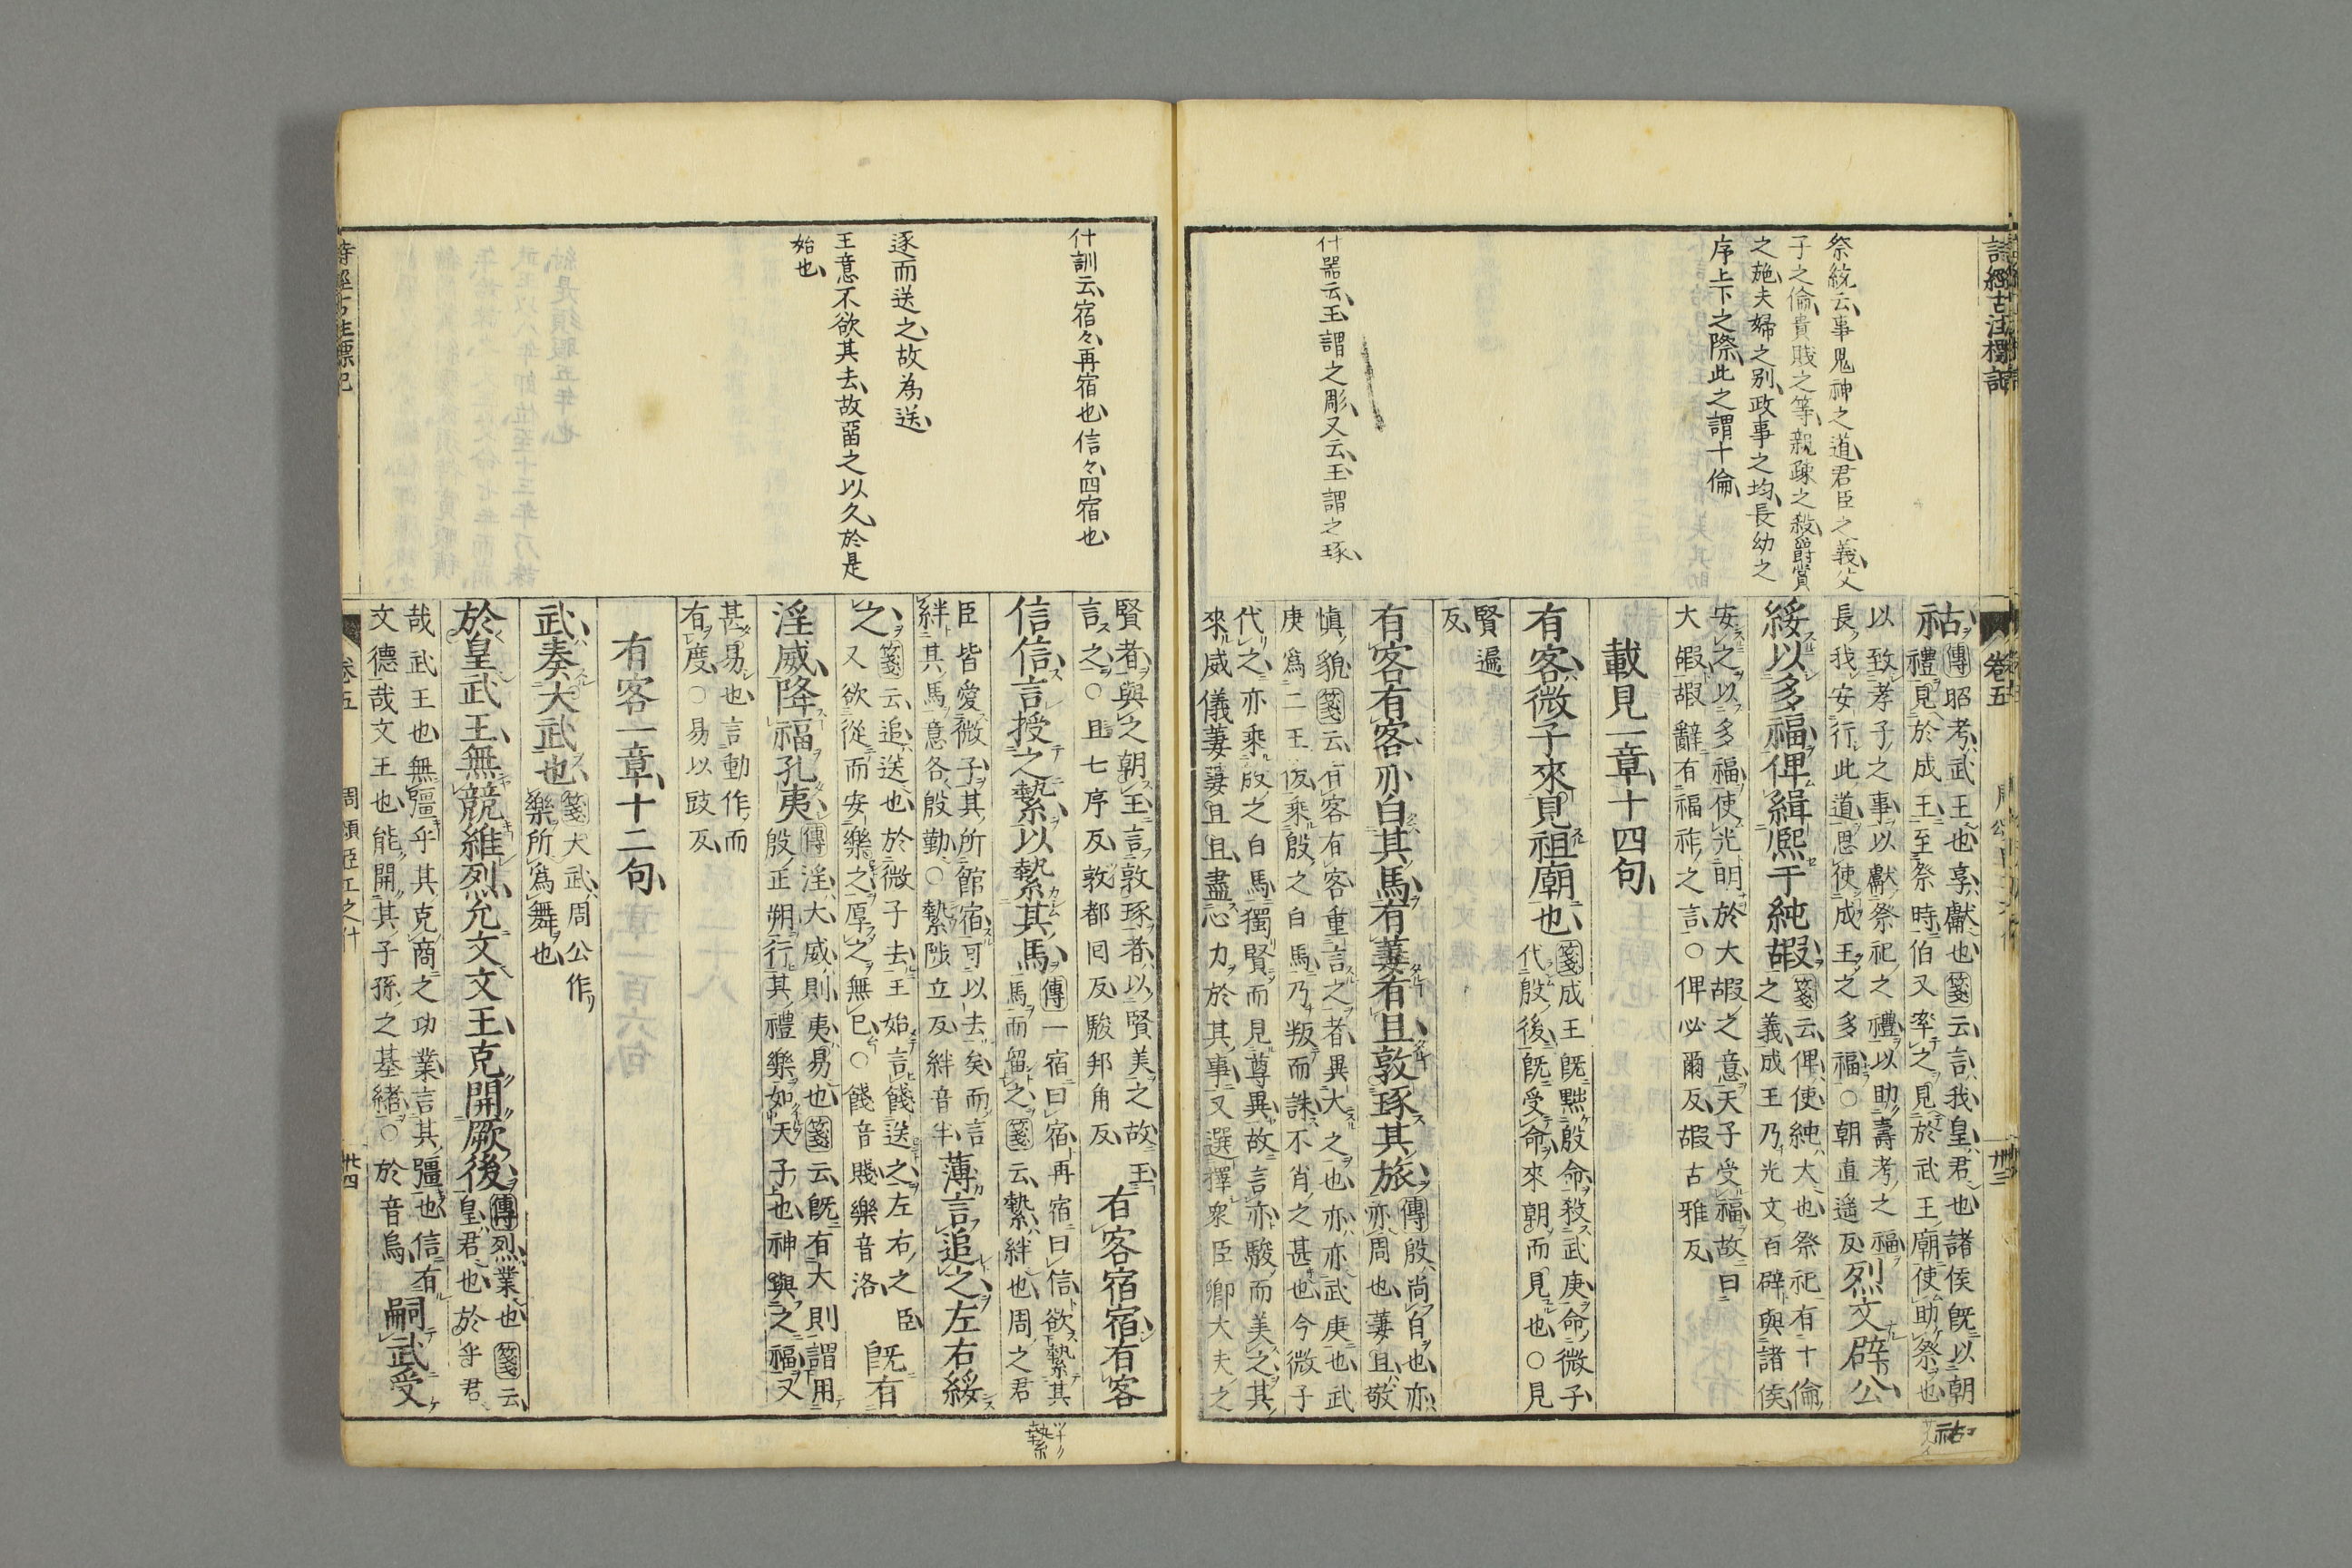 詩經古注標記
卷五
卅三
祭統云、事鬼神之道、君臣之義、父
子之倫、貴賤之等、親疎之殺、爵賞
之施、夫婦之別、政事之均、長幼之
序、上下之際、此之謂十倫、
什器云、玉謂之彫、又云、玉謂之琢、
祜、傳昭考、武王也、享、獻也、箋云、言我皇君也、諸侯既以朝
禮見於成王、至祭時、伯又率之、見於武王廟、使助祭也、
以致孝子之事、以獻祭祀之禮、以助壽考之福、
長我安行此道、思使成王之多福、○朝直遙反、烈文辟公、
綏以多福、俾緝熙于純嘏、箋云、俾、使、純、大也、祭祀有十倫
之義、成王乃光文百辟與諸侯、
安之以多福、使光明於大嘏之意、天子受福、故曰
大嘏、嘏辭有福祚之言、○俾必爾反、嘏古雅反、
載見一章、十四句、
有客、微子來見祖廟也、箋成王既黜殷命、殺武庚、命微子
代殷後、既受命、來朝而見也、○見
賢遍
反、
有客有客、亦白其馬、有萋有且、敦琢其旅、傳殷尚白也、亦、
亦周也、萋且、敬
慎貌、箋云、有客有客、重言之者、異大之也、亦、亦武庚也、武
庚爲二王後、乘殷之白馬、乃叛而誅、不肖之甚也、今微子
代之、亦乘殷之白馬、獨賢而見尊異、故言亦、駮而美之、其
來威儀萋萋且且、盡心力於其事、又選擇衆臣卿大夫之
什訓云、宿々、再宿也、信々、四宿也、
逐而送之、故為送、
王意不欲其去、故畱之以久、於是
始也、
賢者、與之朝王、言敦琢者、以賢美之、故王
言之、○且七序反、敦都回反、駮邦角反、有客宿宿、有客
信信、言授之縶、以縶其馬、傳一宿曰宿、再宿曰信、欲縶其
馬而留之、箋云、縶、絆也、周之君
臣皆愛微子、其所館宿、可以去矣、而言
絆其馬、意各殷勤、○縶陟立反、絆音半、薄言追之、左右綏
之、箋云、追、送也、於微子去、王始言餞送之、左右之臣
又欲從而安樂之、厚之無已、○餞音賤、樂音洛、既有
淫威、降福孔夷、傳淫、大、威、則、夷、易也、箋云、既有大則、謂用
殷正朔、行其禮樂、如天子也、神與之福、又
甚易也、言動作而
有度、○易以豉反、
有客一章、十二句、
武、奏大武也、箋大武、周公作
樂所爲舞也、
於皇武王、無競維烈、允文文王、克開厥後、傳烈、業也、箋云、
皇、君也、於乎君
哉武王也、無彊乎其克商之功業、言其彊也、信有
文德哉文王也、能開其子孫之基緒、○於音烏、嗣武受
卷五
廿四
縶
祜